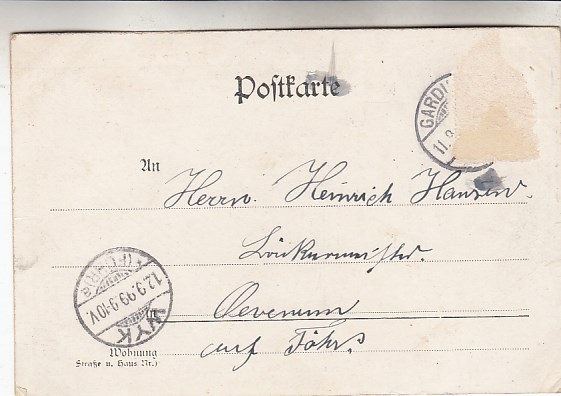 Postkarte
GARDI
11.9
An
Herrn Heinrich Hansen
Bäckermeister
WYK (FÖHR)
12.9.99.9-10V.
in
Oevenum
auf Föhr.
Wohnung
(Straße u. Haus Nr.)